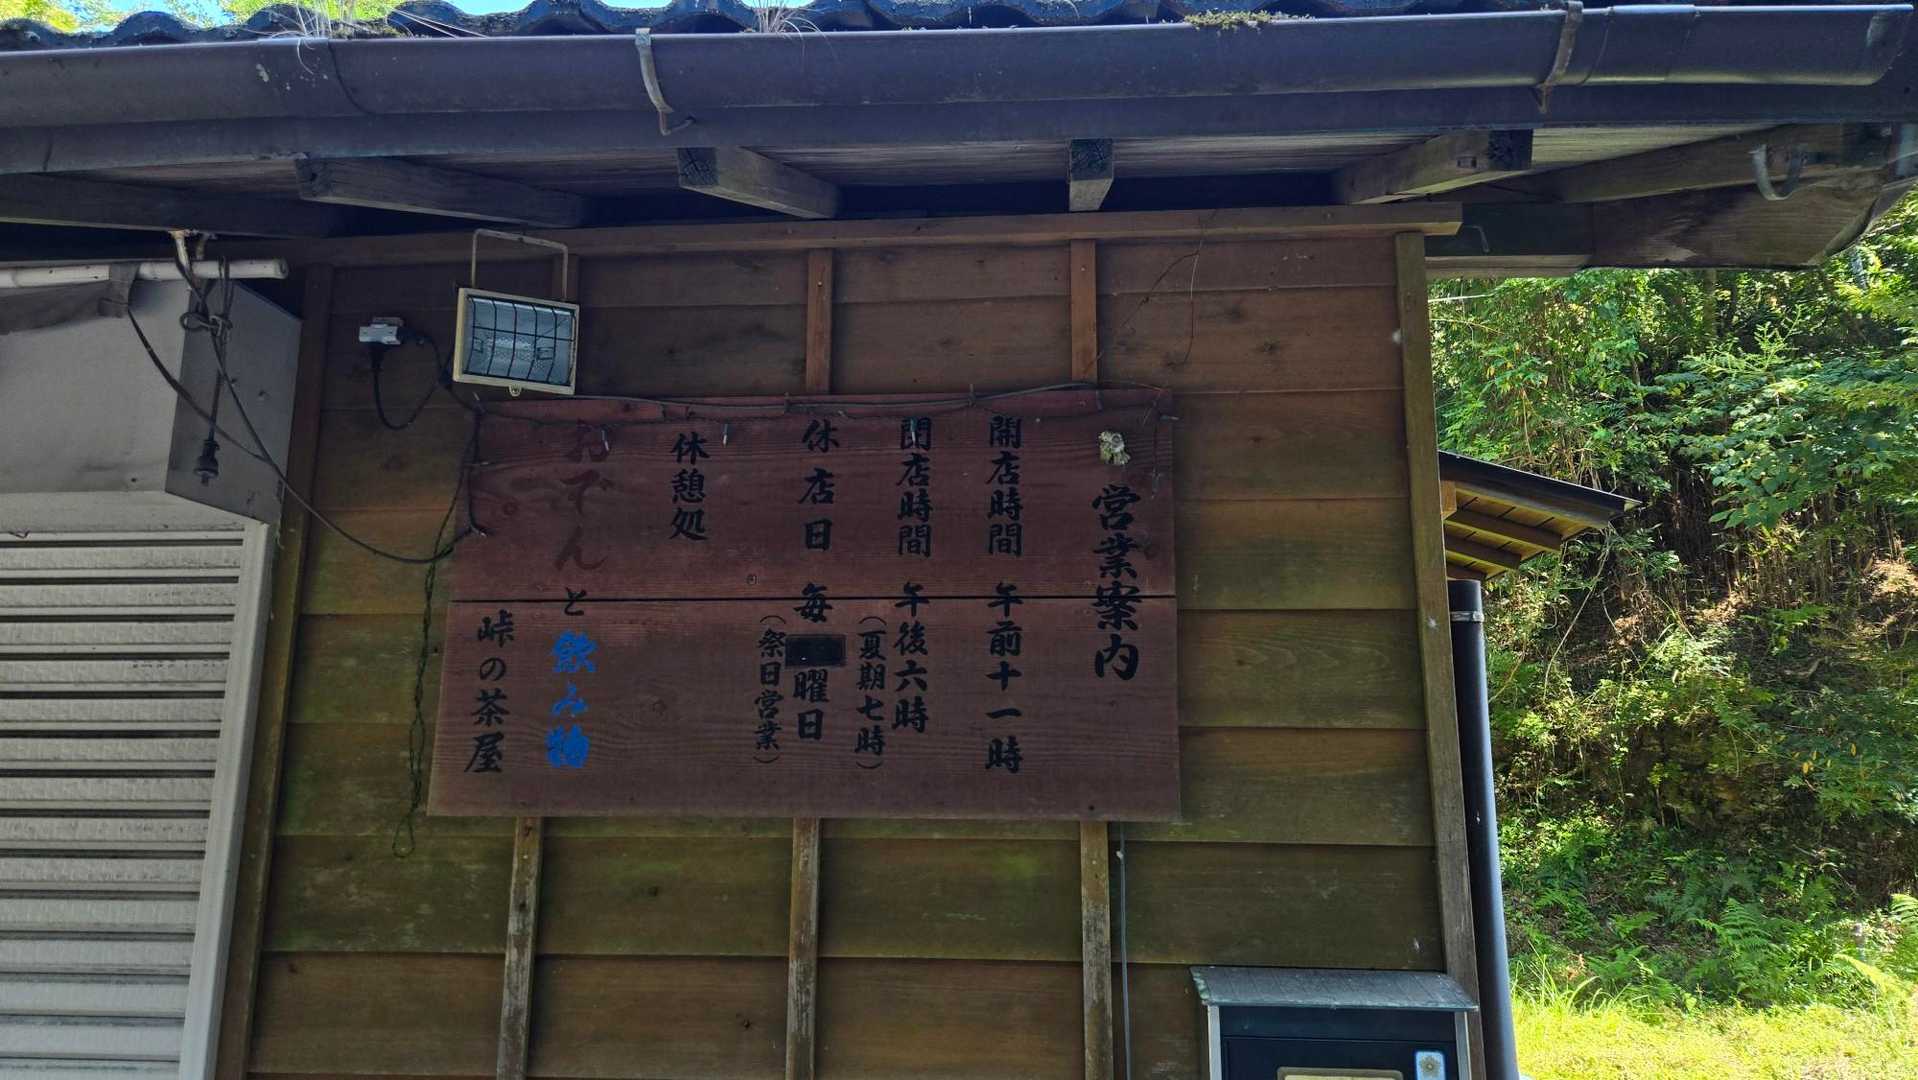 営業案内
開店時間 午前十一時
閉店時間 午後六時
(夏期七時)
休店日 毎 曜日
(祭日営業)
休憩処
おでんと飲み物
峠の茶屋